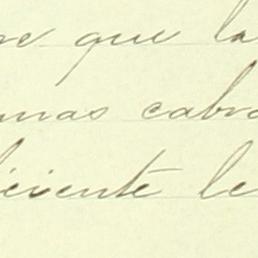 re que la
mas cabra
iciente le